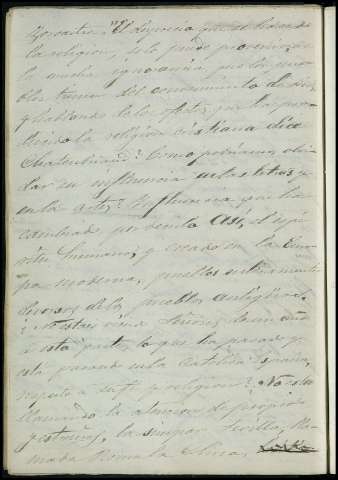 " El desprecio que se hace de
la religion, solo puede provenir, de
la mucha ignorancia, en los pue-
blos tienen del conocimiento de Dios,
y hablando de los efectos que ha pro-
ducido la religion cristiana dice
Chateaubriand: Como podriamos olvi-
dar su influencia en las letras y
en las artes? Influencia que ha
cambiado por decirlo Así, el espi-
ritu humano, y creado en la Euro-
pa moderna, pueblos enteramente
diversos de los pueblos antiguos.
¿No estais viendo Señores de un año
a esta parte, lo que ha pasado y
está pasando en la Católica España,
respecto a su religion? No está
llamando la atencion de propios
y estraños, la sin par Sevilla, lla-
mada Roma la chica,